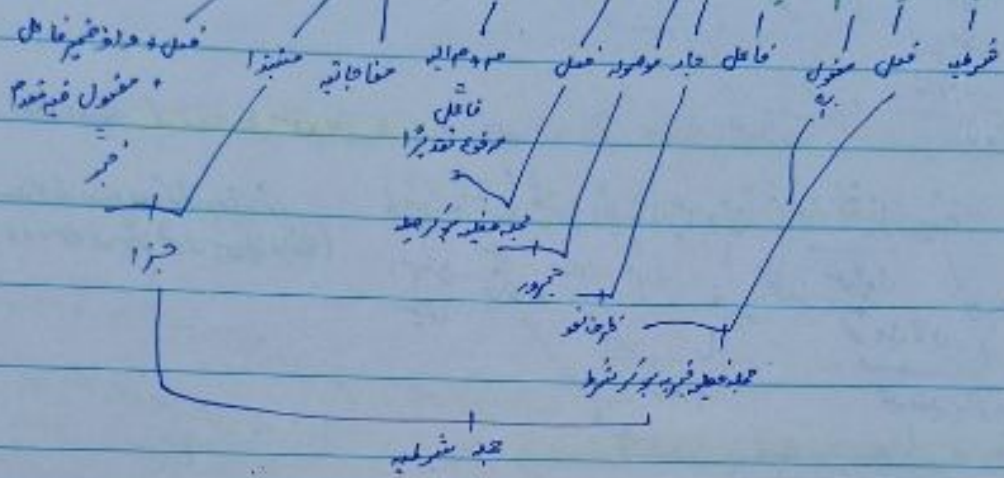 شرطیہ فعل مفعول فاعل جار موصولہ فعل م + م الیہ مفاجاتیہ مبتدا فعل + واو ضمیر فاعل
بہ فاعل + مفعول فیہ مقدم
مرفوع تقدیرًا خبر
جملہ فعلیہ ہو کر صلہ
جزا
مجرور
ظرف لغو
جملہ فعلیہ خبریہ ہو کر شرط
جملہ شرطیہ